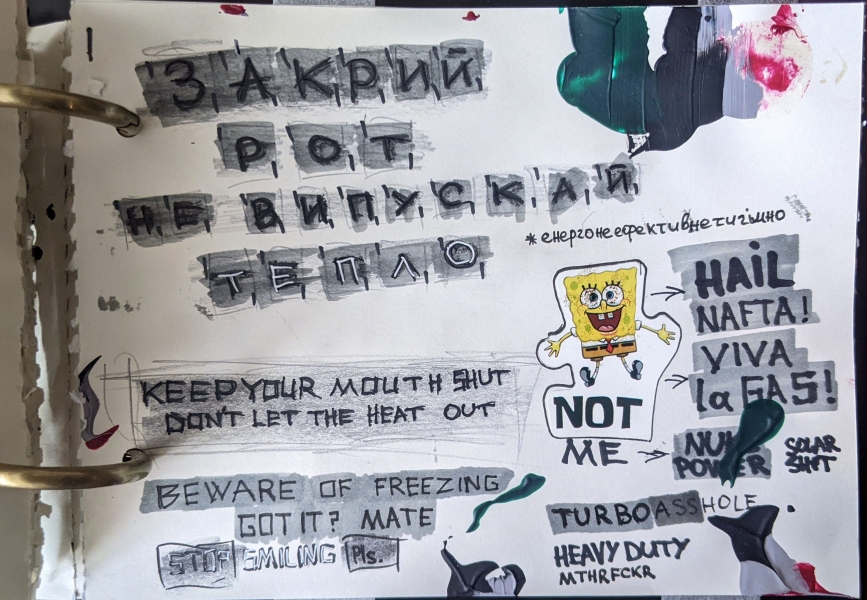 ЗАКРИЙ
РОТ
НЕ ВИПУСКАЙ
ТЕПЛО
*енергонеефективнетигімно
KEEP YOUR MOUTH SHUT
DON'T LET THE HEAT OUT
BEWARE OF FREEZING
GOT IT? MATE
STOP SMILING Pls.
NOT
ME
HAIL
NAFTA!
VIVA
la GAS!
POWER
SOLAR
SH*T
TURBOASSHOLE
HEAVY DUTY
MTHRFCKR